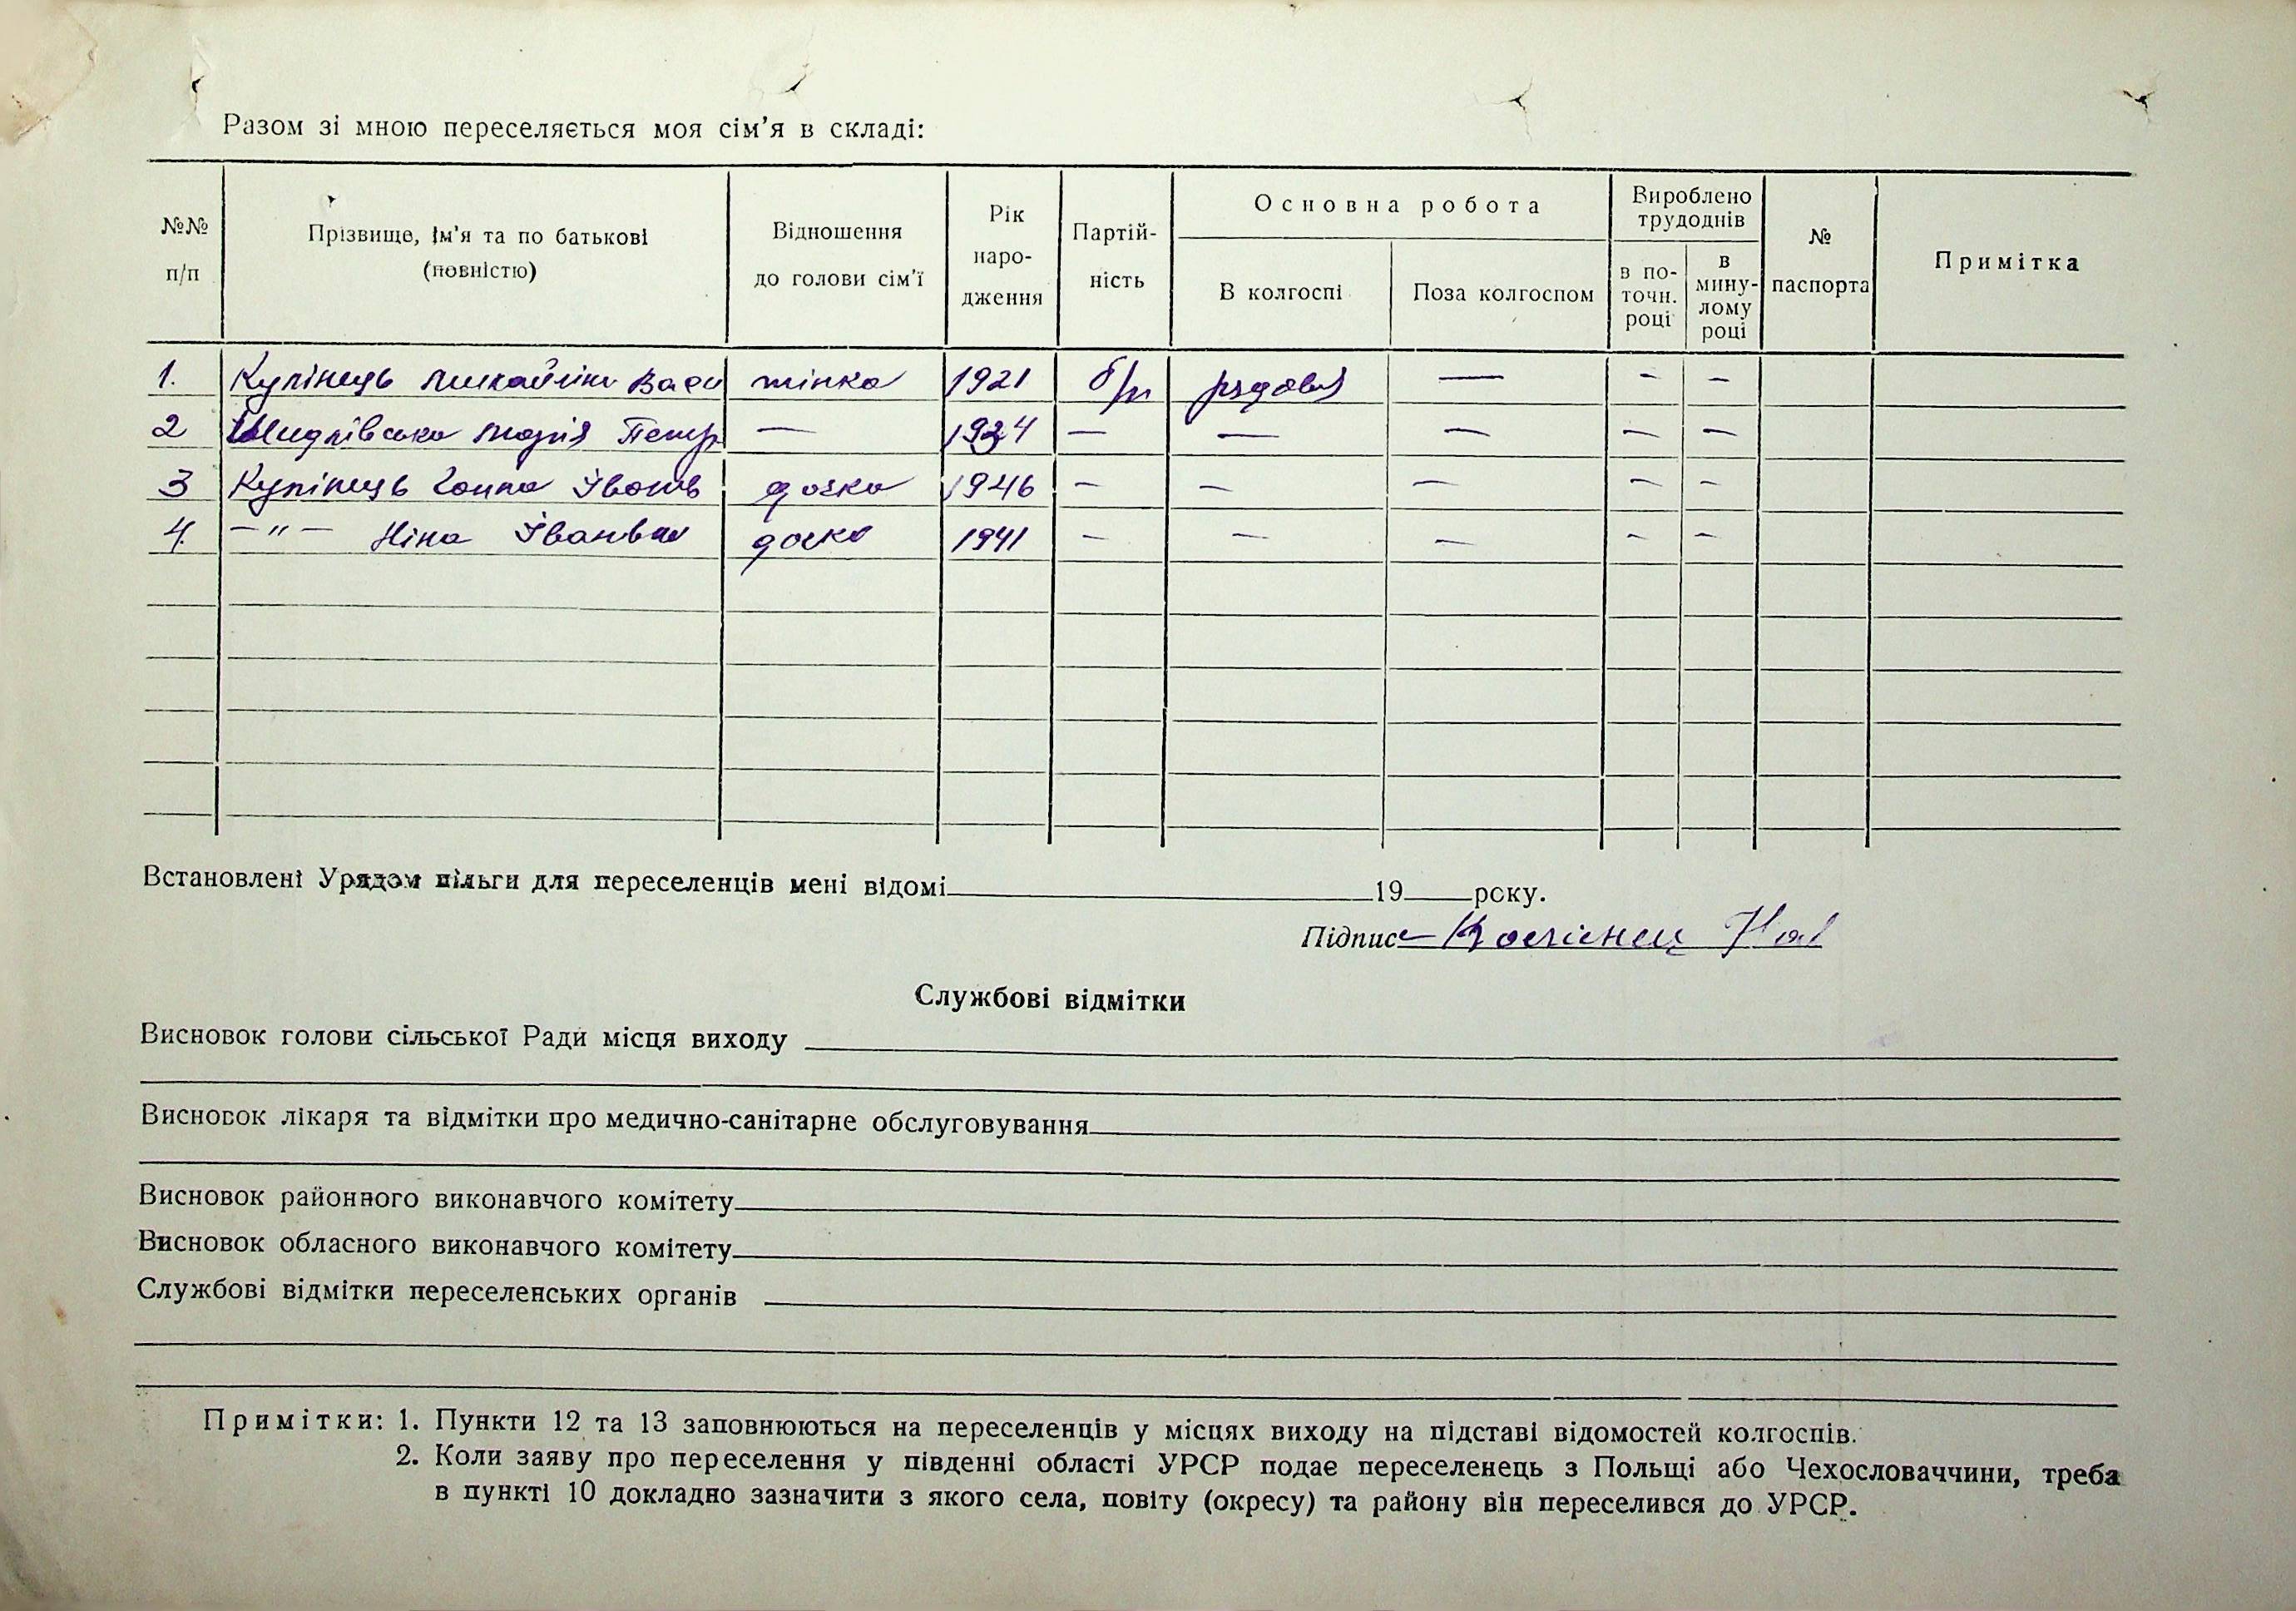 Разом зі мною переселяється моя сім'я в складі:
№№ п/п
Прізвище, ім'я та по батькові (повністю)
Відношення до голови сім'ї
Рік народження
Партійність
Основна робота
В колгоспі
Поза колгоспом
Вироблено трудоднів
в поточн. році
в минулому році
№ паспорта
Примітка
1. Купінець Михайліна Васи жінка 1921 б/п рядова — - -
2 Марія Петр — 1934 — — — — —
3 Купінець Ганна Іванів дочка 1946 — — — — —
4. —"— Ніна Іванівна дочка 1941 — — — - -
Встановлені Урядом пільги для переселенців мені відомі 19 року.
Підпис
Службові відмітки
Висновок голови сільської Ради місця виходу
Висновок лікаря та відмітки про медично-санітарне обслуговування
Висновок районного виконавчого комітету
Висновок обласного виконавчого комітету
Службові відмітки переселенських органів
Примітки: 1. Пункти 12 та 13 заповнюються на переселенців у місцях виходу на підставі відомостей колгоспів.
2. Коли заяву про переселення у південні області УРСР подає переселенець з Польщі або Чехословаччини, треба
в пункті 10 докладно зазначити з якого села, повіту (окресу) та району він переселився до УРСР.